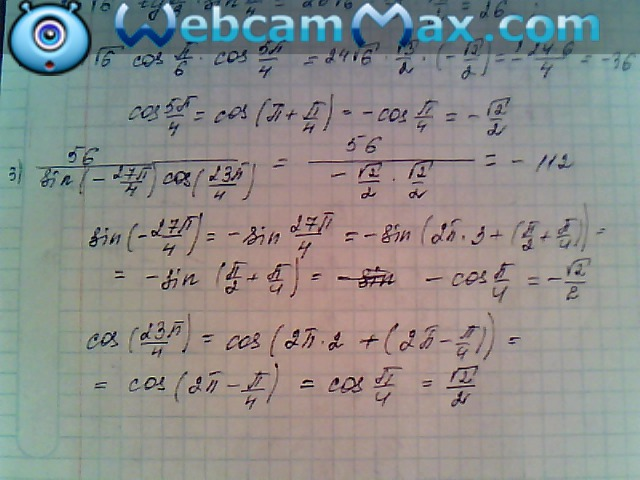 WebcamMax.com
√6 cos π/6 · cos 5π/4 = 24√6 · √3/2 · (-√2/2) = - 24·6/4 = -36
cos 5π/4 = cos (π + π/4) = - cos π/4 = - √2/2
3) 56 / (sin (- 27π/4) cos (23π/4)) = 56 / (- √2/2 · √2/2) = - 112
sin (- 27π/4) = - sin 27π/4 = - sin (2π · 3 + (π/2 + π/4)) =
= - sin (π/2 + π/4) = - sin - cos π/4 = - √2/2
cos (23π/4) = cos (2π · 2 + (2π - π/4)) =
= cos (2π - π/4) = cos π/4 = √2/2